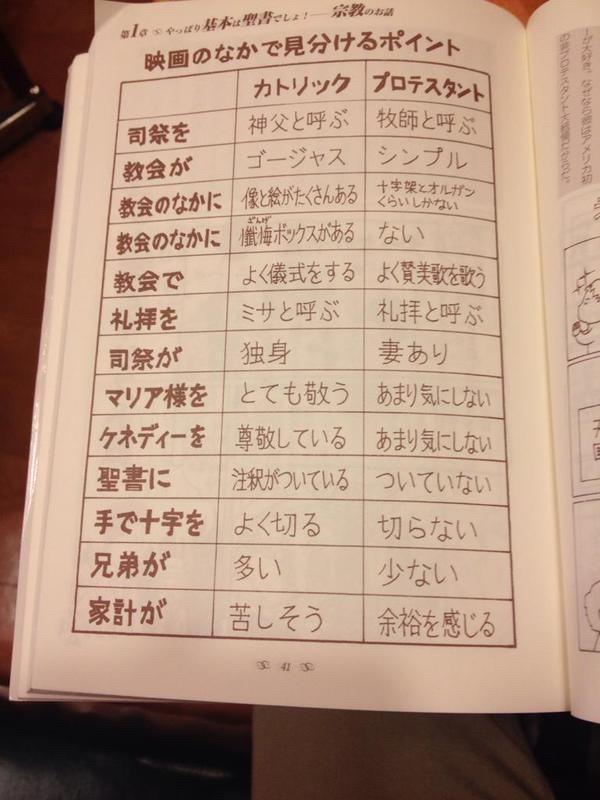 第1章 やっぱり基本は聖書でしょ!――宗教のお話
映画のなかで見分けるポイント
カトリック プロテスタント
司祭を 神父と呼ぶ 牧師と呼ぶ
教会が ゴージャス シンプル
教会のなかに 像と絵がたくさんある 十字架とオルガン
くらいしかない
ざんげ
教会のなかに 懺悔ボックスがある ない
教会で よく儀式をする よく賛美歌を歌う
礼拝を ミサと呼ぶ 礼拝と呼ぶ
司祭が 独身 妻あり
マリア様を とても敬う あまり気にしない
ケネディーを 尊敬している あまり気にしない
聖書に 注釈がついている ついていない
手で十字を よく切る 切らない
兄弟が 多い 少ない
家計が 苦しそう 余裕を感じる
41
ーが大好き。なぜなら彼はアメリカ初